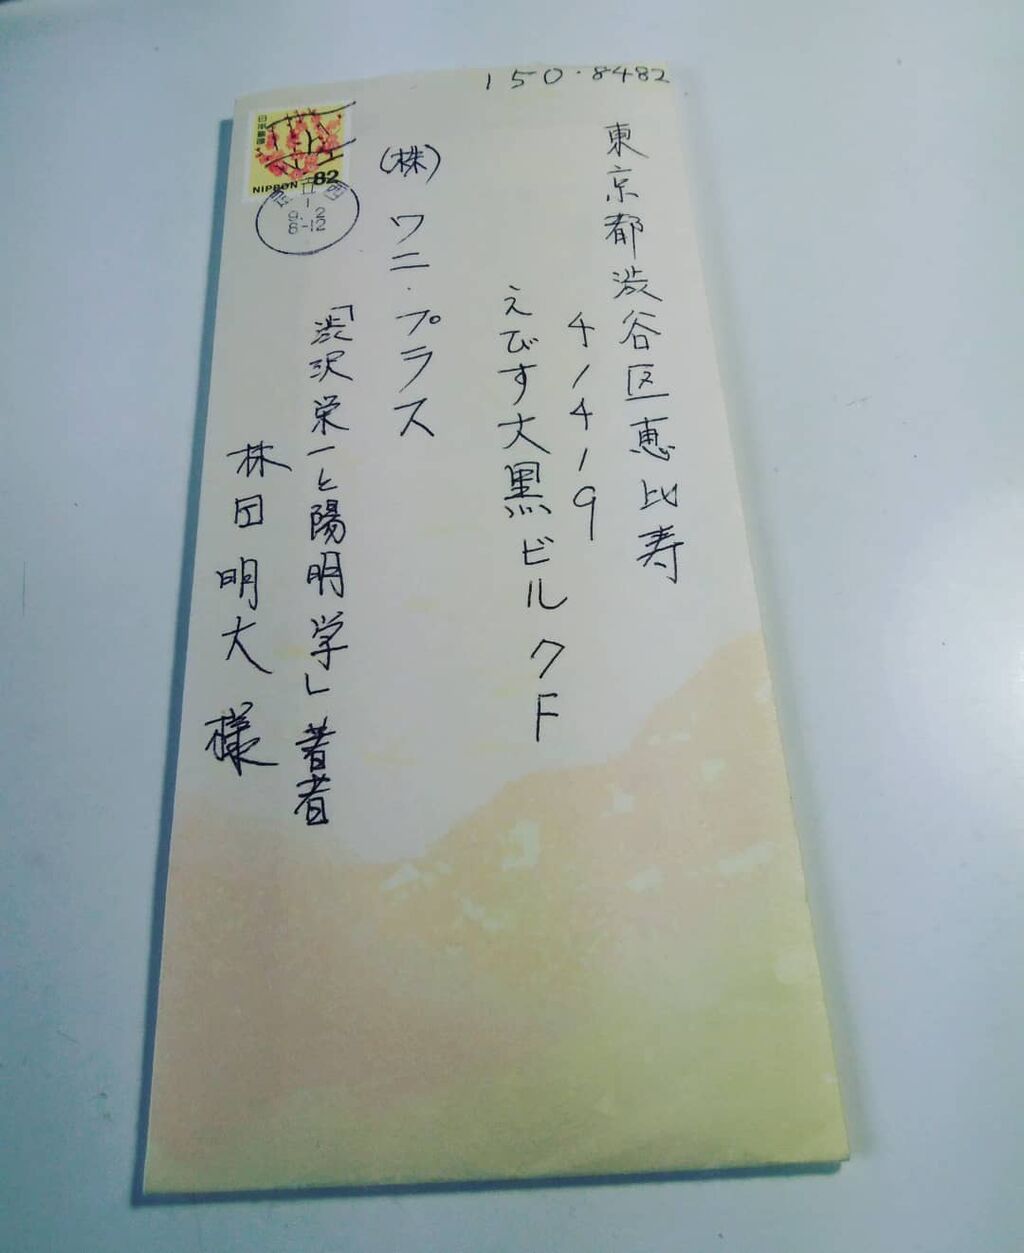 150.8482
東京都渋谷区恵比寿
4/4/9
えびす大黒ビル7F
(株)ワニ・プラス
「渋沢栄一と陽明学」著者
林田明大様
日本郵便
NIPPON 82
1
9. 2
8-12